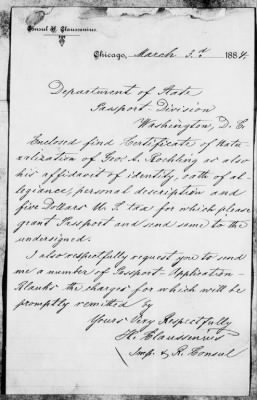 Consul H. Claussenius.
Chicago, March 3.d 1884.
Department of State
Passport-Division
Washington, D. C.
Enclosed find Certificate of Natu-
ralization of Geo. A. Kochling as also
his affidavit of identity, oath of al-
legiance, personal description and
five Dollars U. S. tax for which please
grant Passport and send same to the
undersigned.
I also respectfully request you to send
me a number of Passport-Application-
Blanks the charges for which will be
promptly remitted by
Yours Very Respectfully
H. Claussenius
Imp. & R. Consul